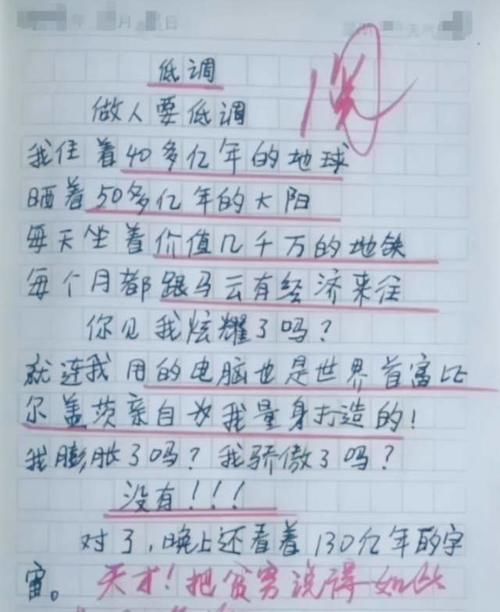 低调
做人要低调
我住着40多亿年的地球
晒着50多亿年的太阳
每天坐着价值几千万的地铁
每个月都跟马云有经济来往
你见我炫耀了吗?
就连我用的电脑也是世界首富比
尔盖茨亲自为我量身打造的!
我膨胀了吗?我骄傲了吗?
没有!!!
对了,晚上还看着130亿年的宇
宙。天才!把贫穷说得如此